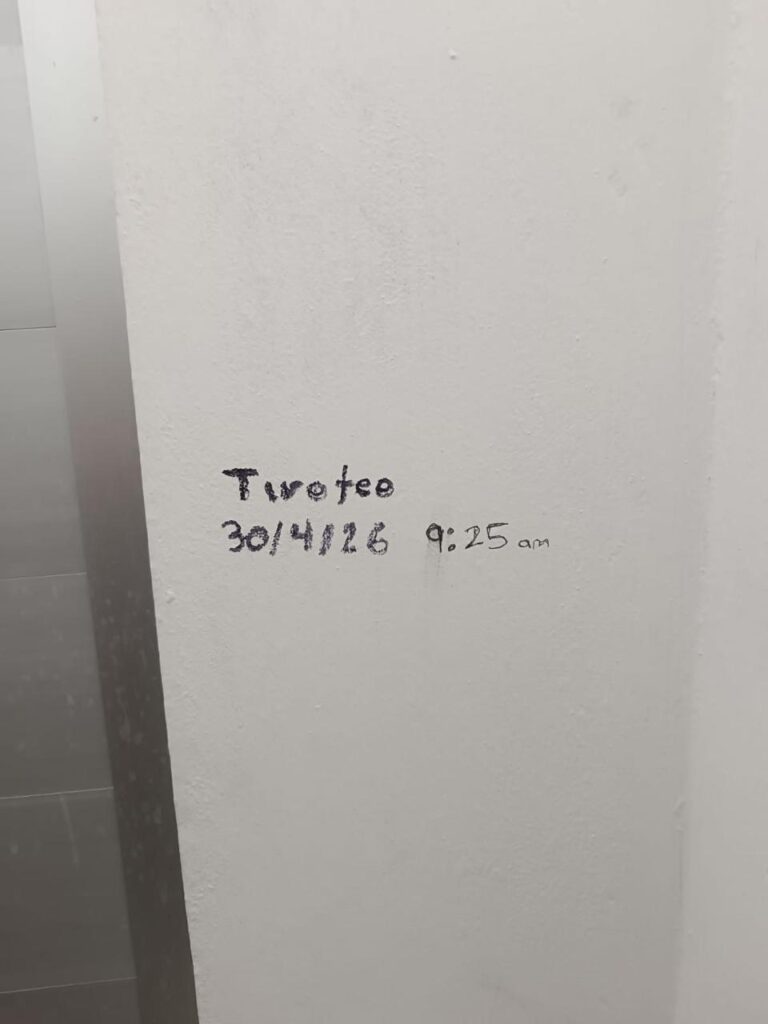 Tiroteo
30/4/26 9:25 am